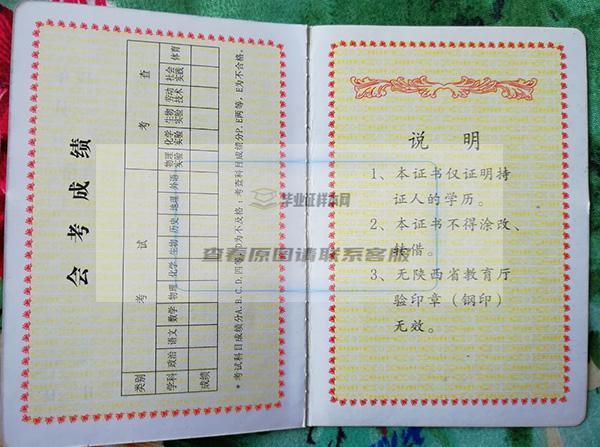 会考成绩
类别 考试 考查
学科 政治 语文 数学 物理 化学 生物 历史 地理 外语 物理实验 化学实验 生物实验 劳动技术 社会实践 体育
成绩
*考试科目成绩分A、B、C、D、四等，D为不合格；考查科目成绩分P、E两等，E为不合格。
说 明
1、本证书仅证明持
证人的学历。
2、本证书不得涂改、
转借。
3、无陕西省教育厅
验印章（钢印）
无效。
毕业证样本网
查看原图请联系客服